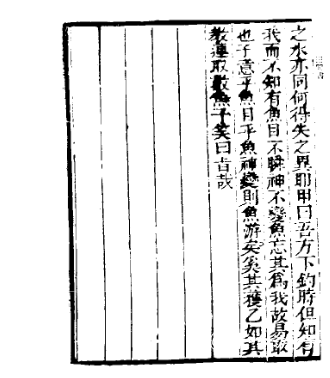 之水亦同何得失之異耶甲曰吾方下釣時但知有
我而不知有魚目不瞬神不變魚忘其爲我故易取
也子意乎魚目乎魚神變則魚游矣奚其獲乙如其
敎連取數魚子笑曰旨哉